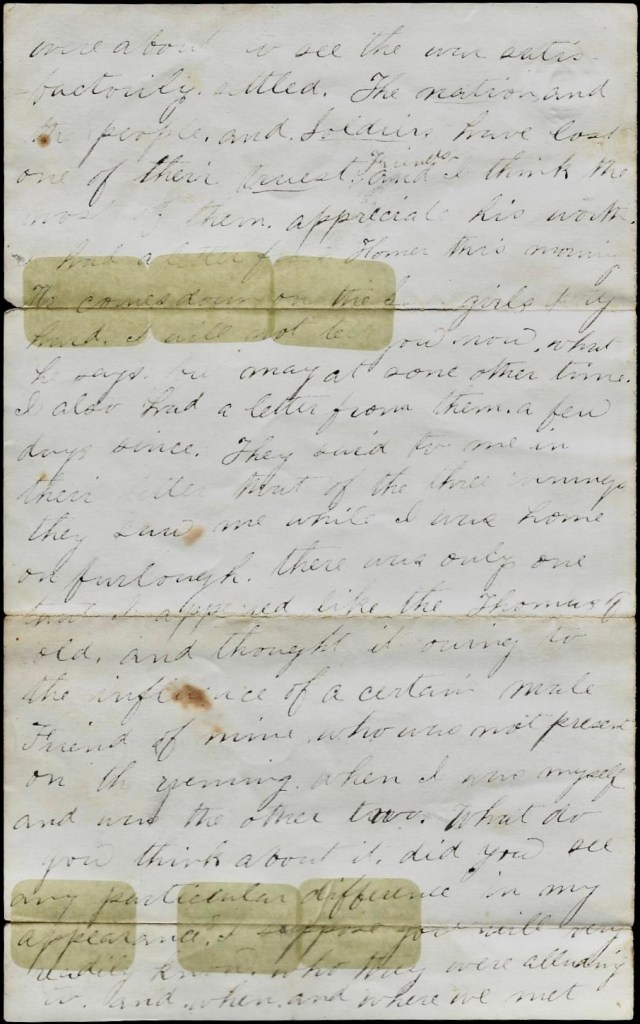 were about to see the war satis-
factorily settled. The nation and
the people. and Soldiers have lost
one of their truest Friends and I think the
most of them. appreciate his worth.
I had a letter from Homer this morning
He comes down on the girls
hard. I will not tell you now. what
he says. may at some other time.
I also had a letter from them. a few
days since. They said to me in
their letter that of the three evenings
they saw me while I was home
on furlough. there was only one
that I appeared like the Thomas of
old. and thought it owing to
the influence of a certain male
Friend of mine. who was not present
on the evening. when I was myself
and was the other two. What do
you think about it. did you see
any particular difference in my
appearance. I suppose you will very
readily know. who they were alluding
to. and. when. and where we met